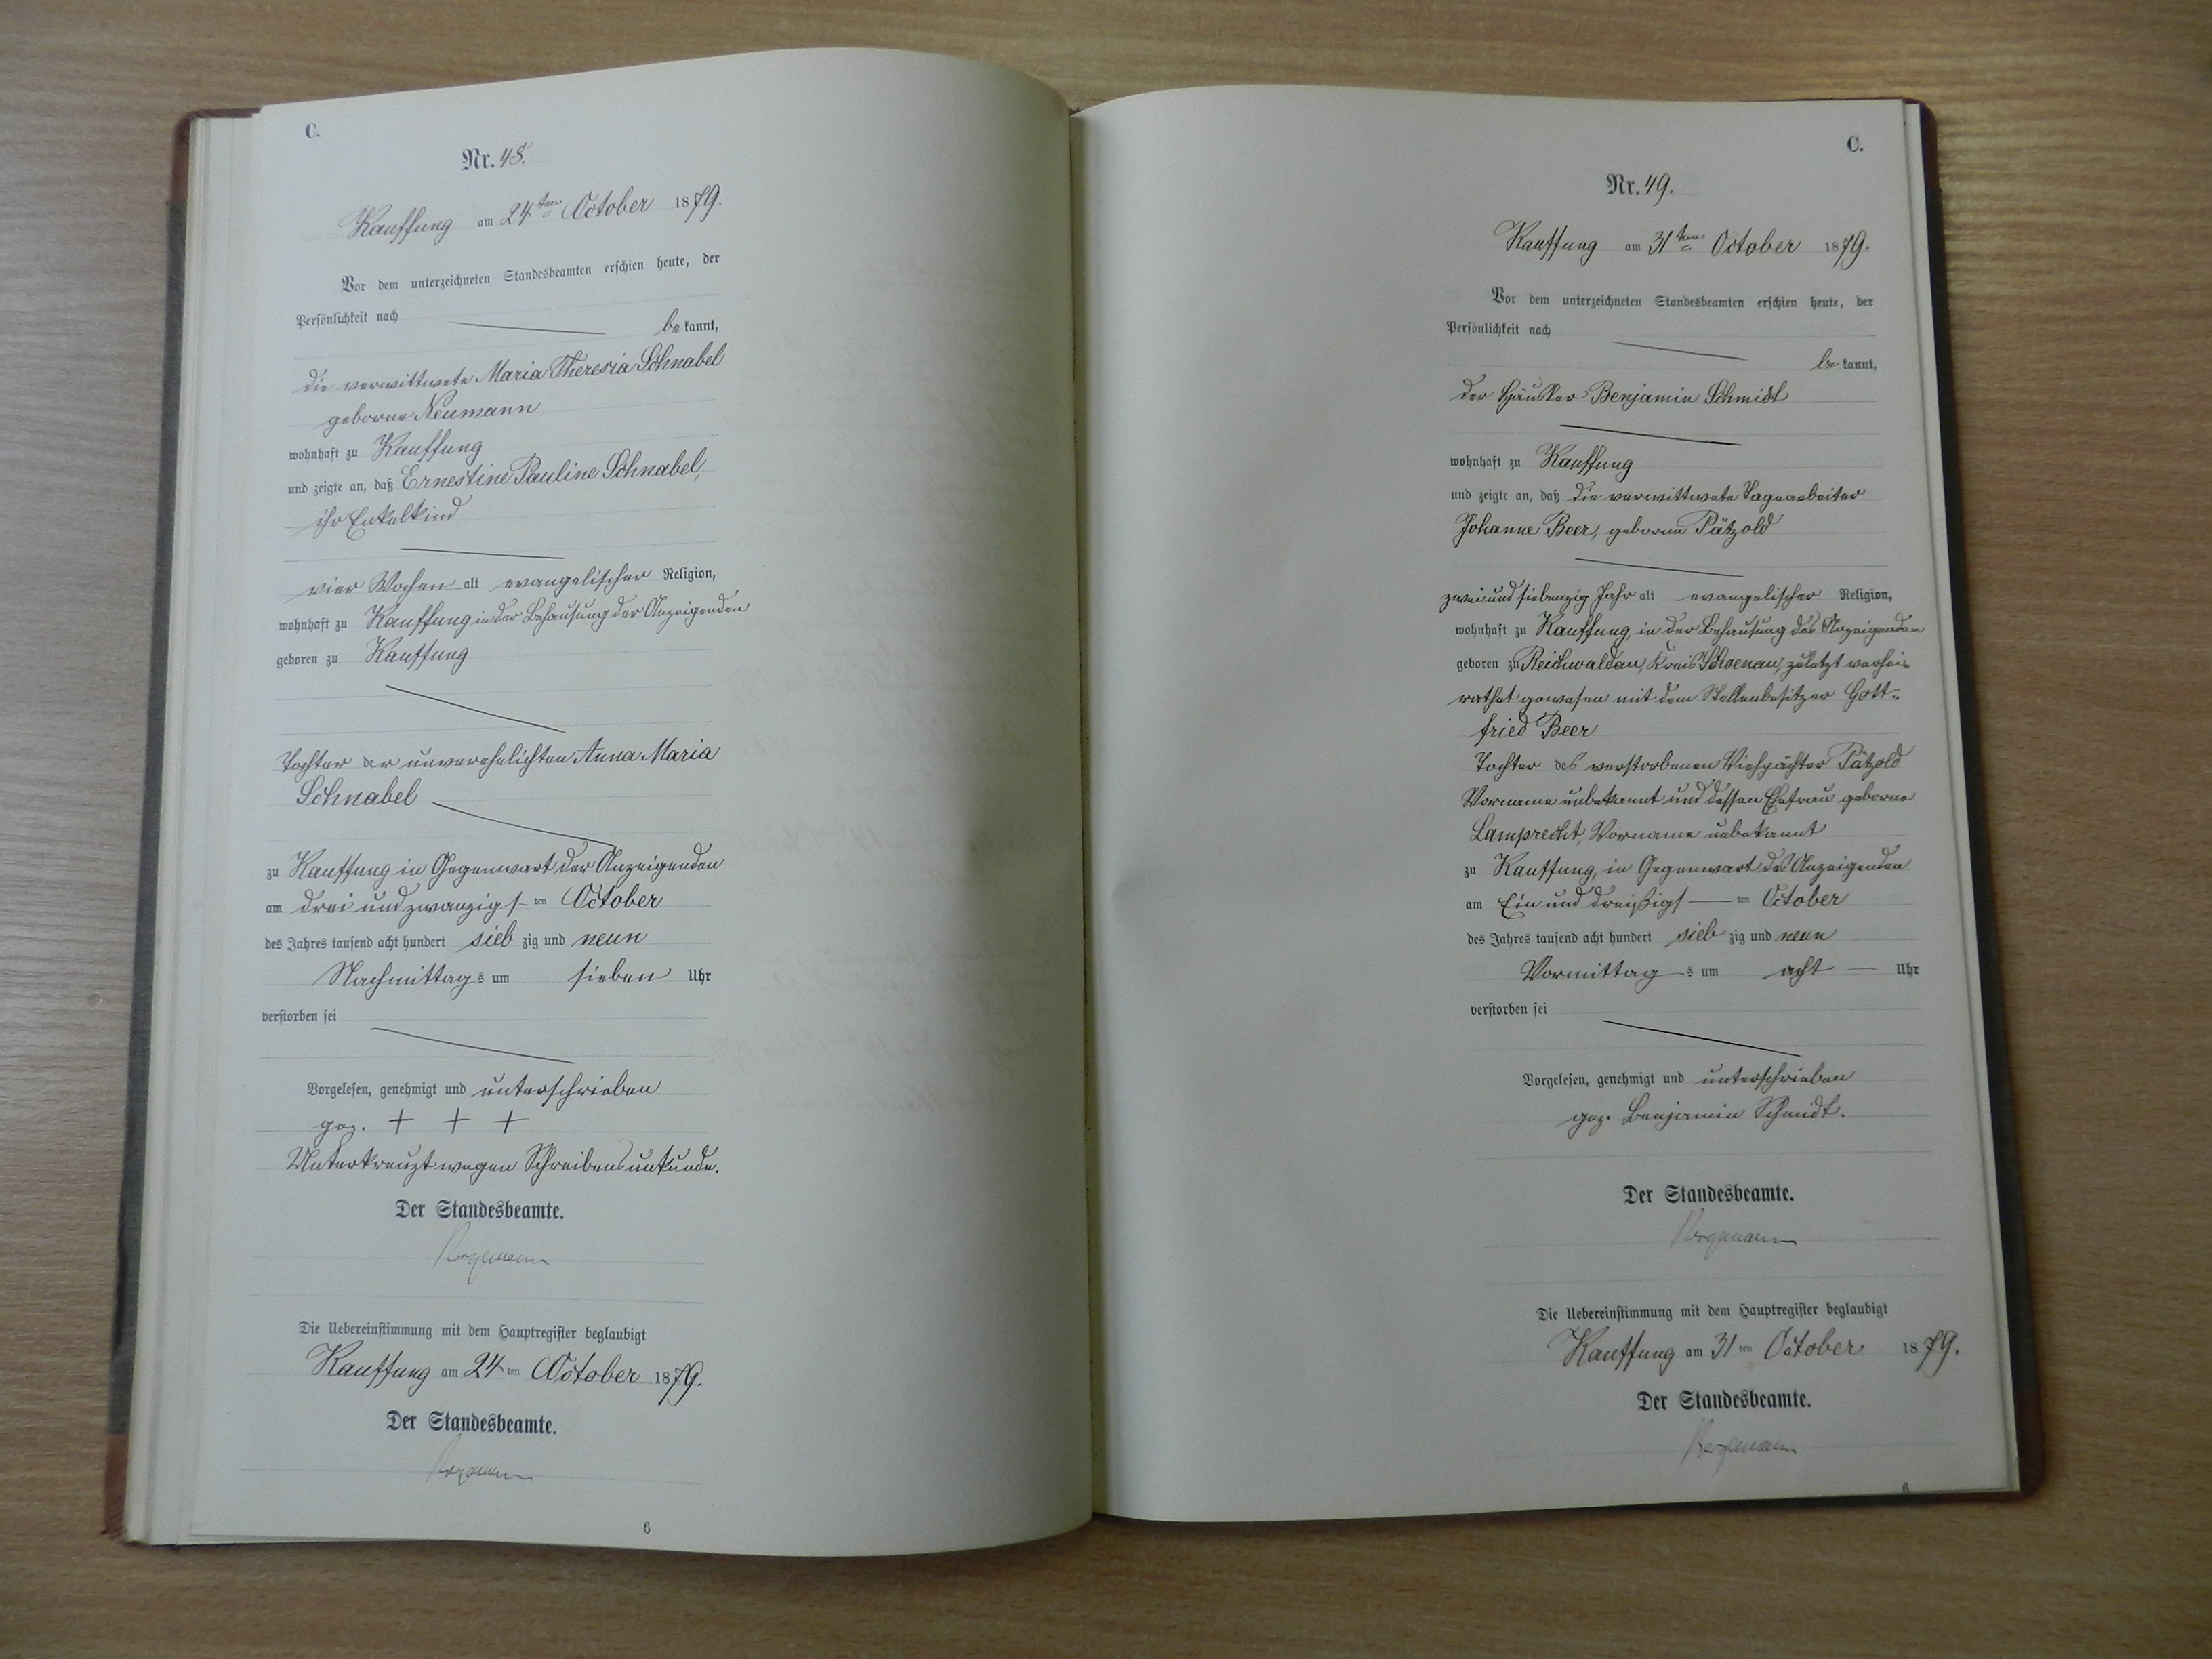 C.
Nr. 48.
Kauffung am 24ten October 1879.
Vor dem unterzeichneten Standesbeamten erschien heute, der
Persönlichkeit nach
bekannt,
die verwittwete Maria Theresia Schnabel
geborne Neumann
wohnhaft zu Kauffung
und zeigte an, daß Ernestine Pauline Schnabel,
ihr Enkelkind
vier Wochen alt evangelischer Religion,
wohnhaft zu Kauffung in der Behausung der Anzeigenden
geboren zu Kauffung
Tochter der unverehelichten Anna Maria
Schnabel
zu Kauffung in Gegenwart der Anzeigenden
am drei und zwanzigsten October
des Jahres tausend acht hundert siebzig und neun
Nachmittags um sieben Uhr
verstorben sei
Vorgelesen, genehmigt und unterschrieben
gez. + + +
Unterkreuzt wegen Schreibensunkunde.
Der Standesbeamte.
Die Uebereinstimmung mit dem Hauptregister beglaubigt
Kauffung am 24ten October 1879.
Der Standesbeamte.
6
C.
Nr. 49.
Kauffung am 31ten October 1879.
Vor dem unterzeichneten Standesbeamten erschien heute, der
Persönlichkeit nach
bekannt,
der Häusler Benjamin Schmidt
wohnhaft zu Kauffung
und zeigte an, daß die verwittwete Tagearbeiter
Johanne Beer, geborne Pätzold
zwei und siebenzig Jahr alt evangelischer Religion,
wohnhaft zu Kauffung, in der Behausung des Anzeigenden
geboren zu Reichwaldau, Kreis Schoenau, zuletzt verhei-
rathet gewesen mit dem Stellenbesitzer Gott-
fried Beer
Tochter des verstorbenen Viehpächter Pätzold
Vorname unbekannt und dessen Ehefrau geborne
Lamprecht, Vorname unbekannt
zu Kauffung, in Gegenwart des Anzeigenden
am Ein und dreißigsten October
des Jahres tausend acht hundert siebzig und neun
Vormittags um acht Uhr
verstorben sei
Vorgelesen, genehmigt und unterschrieben
gez. Benjamin Schmidt.
Der Standesbeamte.
Die Uebereinstimmung mit dem Hauptregister beglaubigt
Kauffung am 31ten October 1879.
Der Standesbeamte.
6